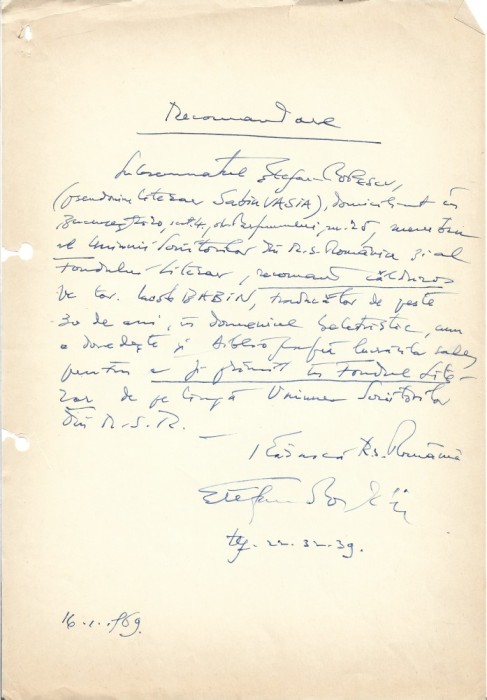 Recomandare
Subsemnatul Ștefan Popescu,
(pseudonim literar Sabin VASIA), domiciliat în
București 20, sect. 4, str. Parfumului, nr. 25, membru
al Uniunii Scriitorilor din R.S. România și al
Fondului Literar, recomand călduros
pe tov. BABIN, traducător de peste
30 de ani, în domeniul beletristic, cum
o dovedește și bibliografia lucrărilor sale,
pentru a fi primit în Fondul Lite-
rar de pe lîngă Uniunea Scriitorilor
din R.S.R.
Trăiască R.S. România
Ștefan
tef. 22.32.39.
16.1.1969.